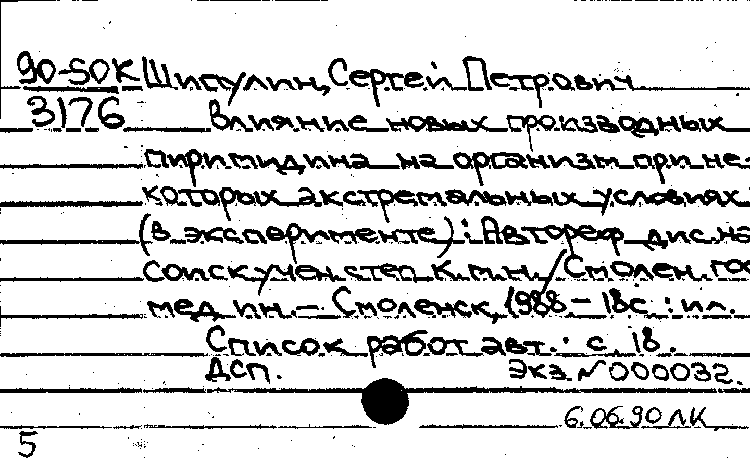 90-50К Шипулин, Сергей Петрович
3176 Влияние новых производных
пиримидина на организм при не-
которых экстремальных условиях
(в эксперименте): Автореф. дис. на
соиск. учен. степ. к.м.н. / Смолен. гос.
мед. ин. - Смоленск, 1988 - 18с.: ил.
Список работ авт.: с. 18.
ДСП. Экз. N000032.
6.06.90 ЛК
5